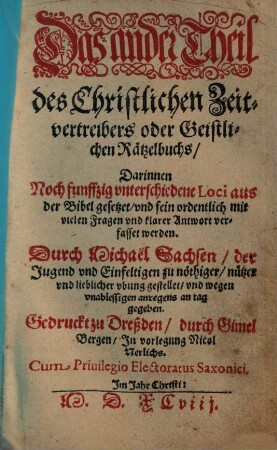 Das ander Theil
des Christlichen Zeit-
vertreibers oder Geistli-
chen Rätzelbuchs/
Darinnen
Noch funffzig vnterschiedene Loci aus
der Bibel gesetzet/vnd fein ordentlich mit
vielen Fragen vnd klarer Antwort ver-
fasset werden.
Durch Michaël Sachsen/ der
Jugend vnd Einfeltigen zu nöthiger/ nützer
vnd lieblicher vbung gestellet/ vnd wegen
vnablessigen anregens an tag
gegeben.
Gedruckt zu Dreßden/ durch Gimel
Bergen/ In vorlegung Nicol
Nerlichs.
Cum Priuilegio Electoratus Saxonici.
Im Jahr Christi:
M. D. XCviij.